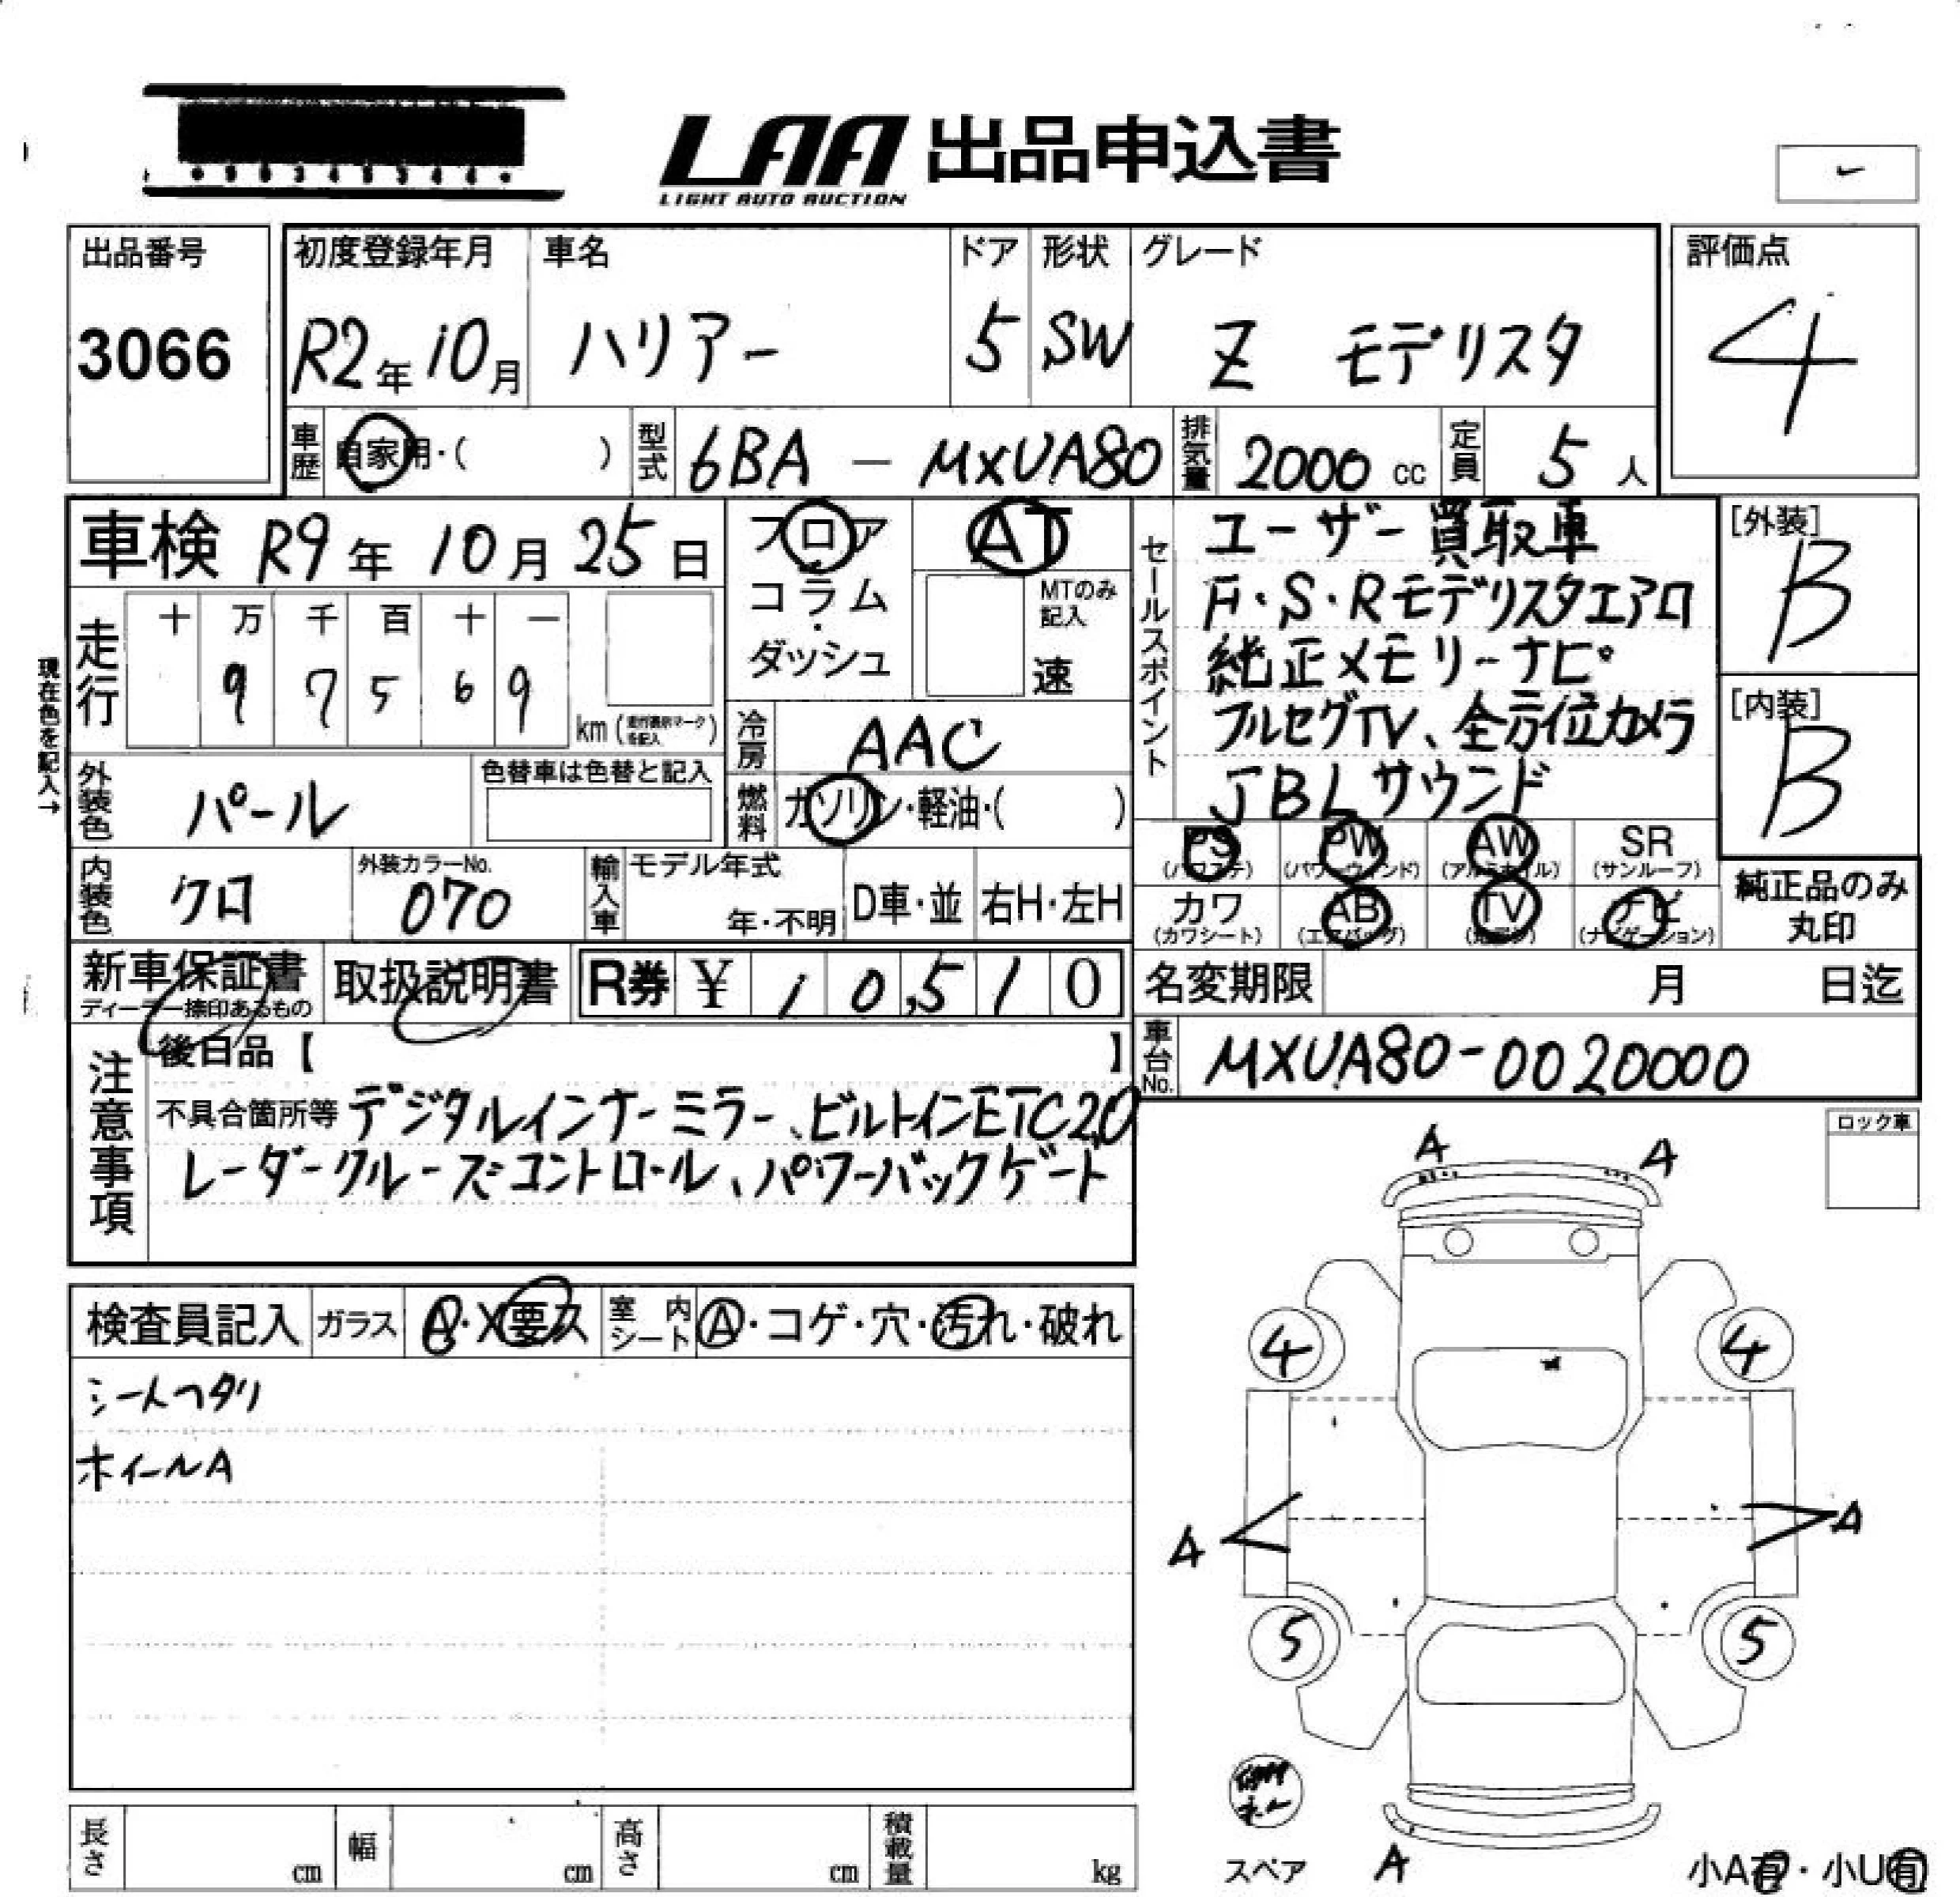 LAA 出品申込書
LIGHT AUTO AUCTION
出品番号
3066
初度登録年月
R2年10月
車名
ハリアー
ドア
5
形状
SW
グレード
Z モデリスタ
評価点
4
車歴 自家用・( )
型式 6BA - MXUA80
排気量 2000 cc
定員 5 人
車検 R9年 10月 25日
走行
十 万 千 百 十 一
9 7 5 6 9
km (走行表示マークを記入)
現在色を記入→
フロア
コラム
・
ダッシュ
AT
MTのみ記入
速
冷房 AAC
燃料 ガソリン・軽油・( )
外装色 パール
色替車は色替と記入
内装色 クロ
外装カラーNo.
070
輸入車
モデル年式
年・不明
D車・並
右H・左H
セールスポイント
ユーザー買取車
F・S・Rモデリスタエアロ
純正メモリーナビ
フルセグTV、全方位カメラ
JBLサウンド
[外装]
B
[内装]
B
PS (パワステ)
PW (パワーウィンド)
AW (アルミホイル)
SR (サンルーフ)
カワ (カワシート)
AB (エアバッグ)
TV
ナビ (ナビゲーション)
純正品のみ丸印
新車保証書
ディーラー捺印あるもの
取扱説明書
R券 ¥ 10,510
名変期限 月 日迄
車台No. MXUA80-0020000
注意事項
後日品【 】
不具合箇所等 デジタルインナーミラー、ビルトインETC2.0
レーダークルーズコントロール、パワーバックゲート
ロック車
検査員記入
ガラス A・X要ス
室内シート A・コゲ・穴・汚れ・破れ
シートヘタリ
ホイールA
A A
4 4
A A
5 5
スペア
A
小A有・小U有
長さ cm
幅 cm
高さ cm
積載量 kg